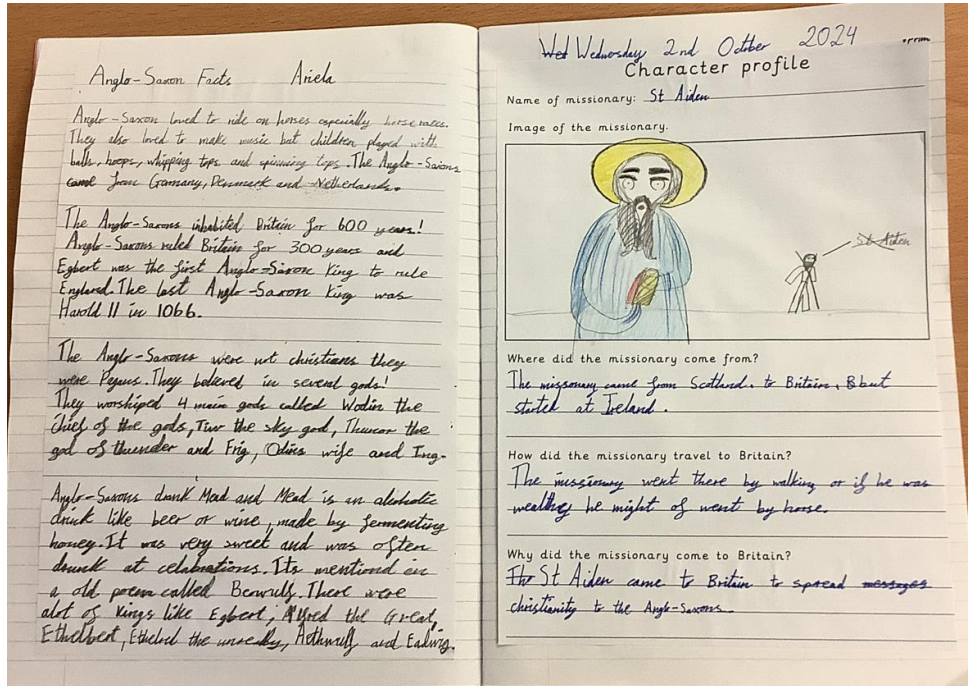 Anglo-Saxon Facts Ariela
Anglo-Saxon loved to ride on horses especially horse races.
They also loved to make music but children played with
balls, hoops, whipping tops and spinning tops. The Anglo-Saxons
came from Gramany, Denmark and Netherlands.
The Anglo-Saxons inhabited Britain for 600 years!
Anglo-Saxons ruled Britain for 300 years and
Egbert was the first Anglo-Saxon King to rule
England. The last Anglo-Saxon King was
Harold II in 1066.
The Anglo-Saxons were not christians they
were Pagans. They believed in several gods!
They worshiped 4 main gods called Wodin the
chief of the gods, Tiw the sky god, Thunor the
god of thunder and Frig, Odins wife and Ing.
Anglo-Saxons drunk Mead and Mead is an alcoholic
drink like beer or wine, made by fermenting
honey. It was very sweet and was often
drunk at celabrations. Its mentiond on
a old poem called Beowulf. There were
alot of Kings like Egbert, Alfred the Great,
Ethelbert, Ethelred the unready, Aethwulf and Eadwig.
Wed Wednesday 2nd October 2024
Character profile
Name of missionary: St Aiden
Image of the missionary.
St Aiden
Where did the missionary come from?
The missionary came from Scotland. to Britain. B but
started at Ireland.
How did the missionary travel to Britain?
The missionary went there by walking or if he was
wealthy he might of went by horse.
Why did the missionary come to Britain?
The St Aiden came to Britain to spread messages
christianity to the Anglo-Saxons.